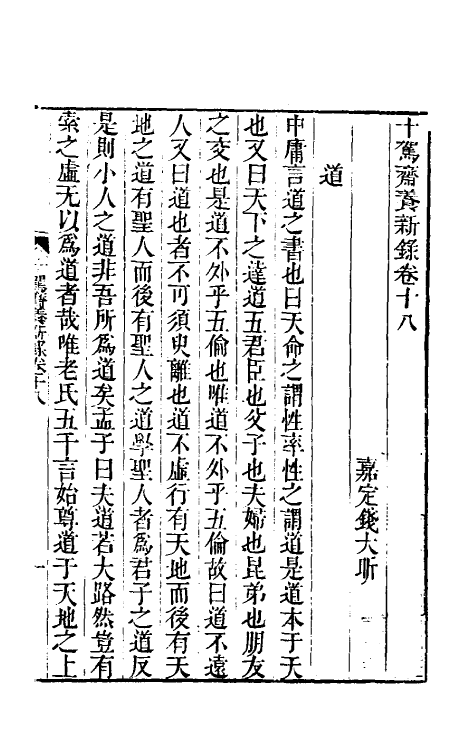 十駕齋養新錄卷十八
嘉定錢大昕
道
中庸言道之書也曰天命之謂性率性之謂道是道本于天
也又曰天下之達道五君臣也父子也夫婦也昆弟也朋友
之交也是道不外乎五倫也唯道不外乎五倫故曰道不遠
人又曰道也者不可須臾離也道不虛行有天地而後有天
地之道有聖人而後有聖人之道學聖人者爲君子之道反
是則小人之道非吾所爲道矣孟子曰夫道若大路然豈有
索之虛无以爲道者哉唯老氏五千言始尊道于天地之上
十駕齋養新錄卷十八
一